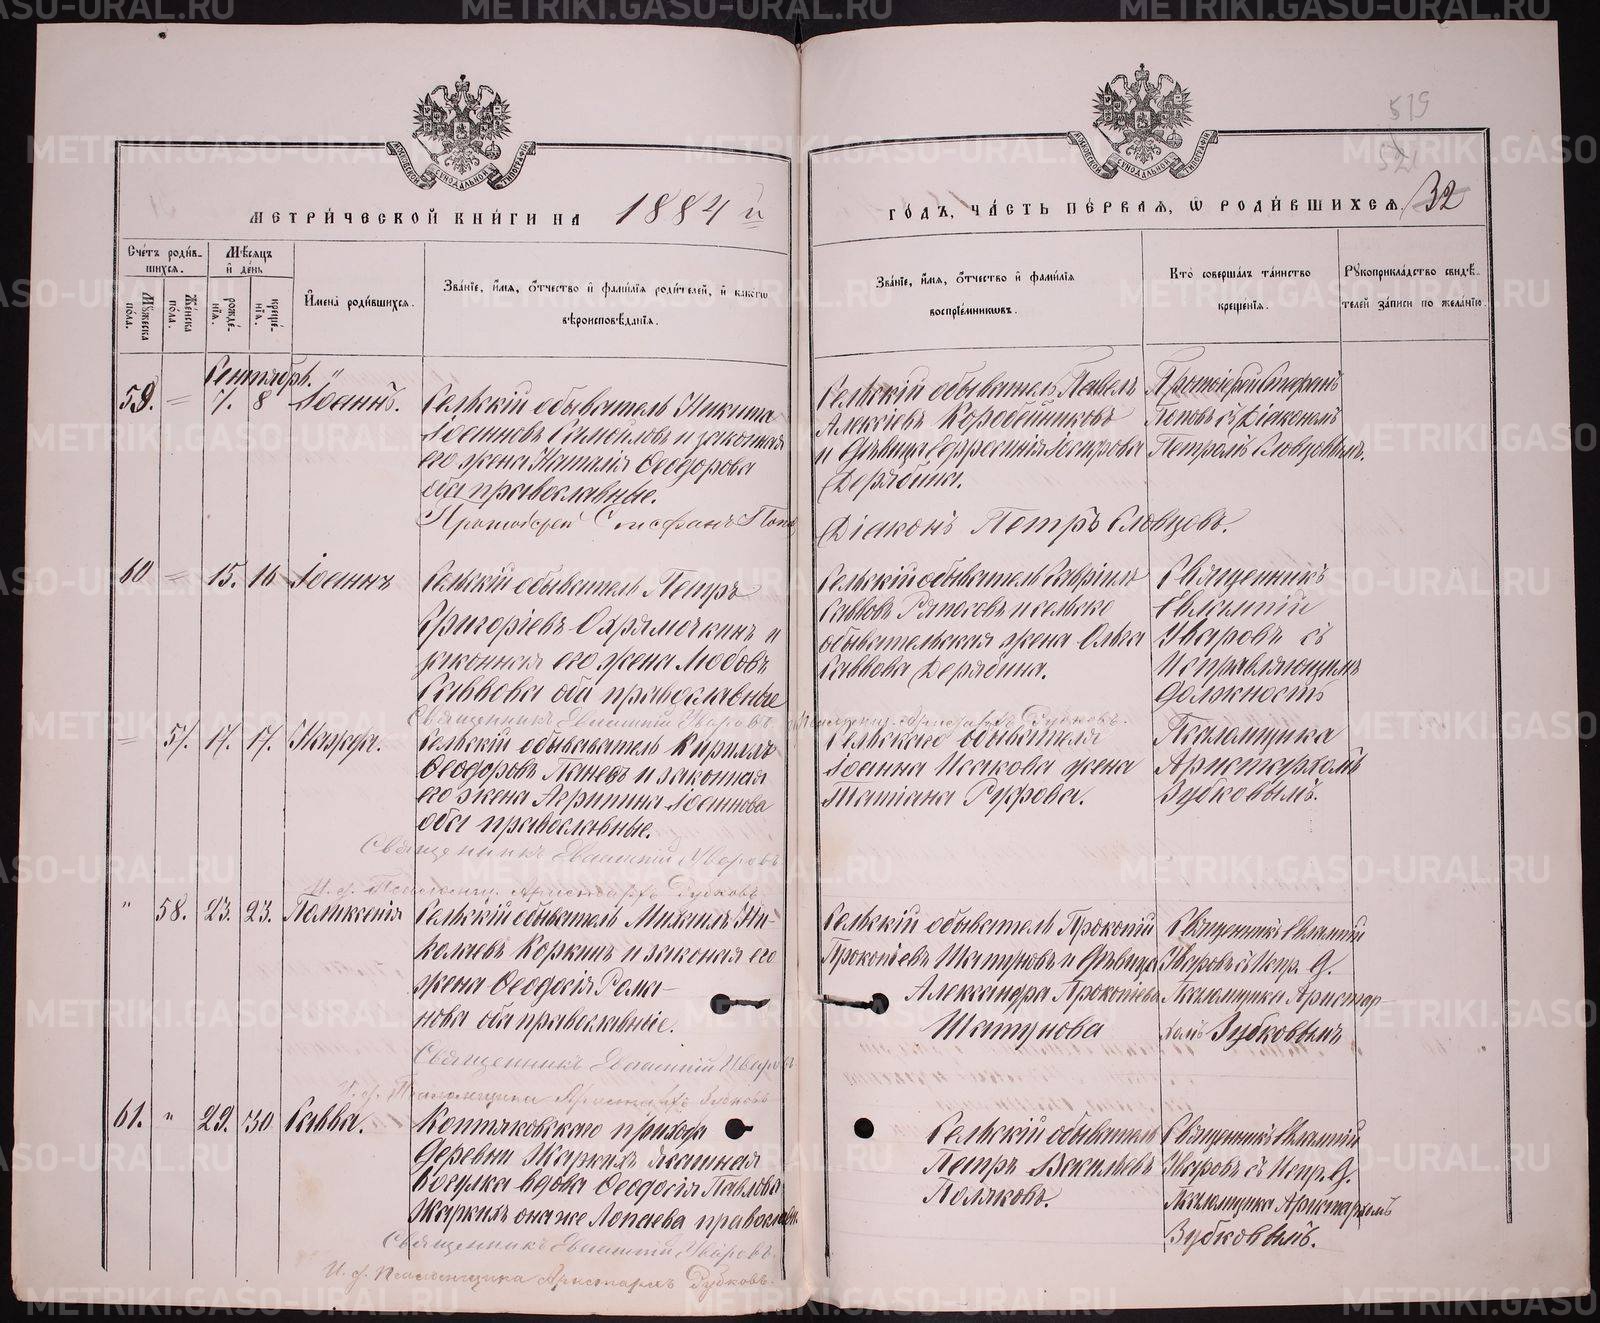 МЕТРИ́ЧЕСКОЙ КНИ́ГИ НА 1884 й
ГО́ДЪ, ЧА́СТЬ ПЕ́РВАЯ, Ѡ РОДИ́ВШИХСЯ. 32
519
521
Сче́тъ роди́в-
шихся.
Му́жеска по́ла.
Же́нска по́ла.
Мѣ́сяцъ
и́ де́нь
рожде́-
нїя.
креще́-
нїя.
И҆мена̀ роди́вшихся.
Зва́нїе, и҆́мя, о҆́тчество и҆ фами́лїя роди́телей, и҆ како́гѡ
вѣроисповѣ́данїя.
Зва́нїе, и҆́мя, о҆́тчество и҆ фами́лїя
воспрїе́мникѡвъ.
Кто̀ соверша́лъ та́инство
креще́нїя.
Рꙋкоприкла́дство свидѣ́-
телей за́писи по жела́нїю.
Сентябрь.
59. = 7. 8 Іоаннъ.
Сельскій обыватель Никита
Іоанновъ Самойловъ и законная
его жена Наталія Ѳеодорова
оба православные.
Протоіерей Стефанъ Попов
Сельскій обыватель Павелъ
Алексіевъ Коробейниковъ
и дѣвица Евфросинія
Дерябина.
Діаконъ Петръ Словцовъ.
Протоіерей Стефанъ
Поповъ съ Діакономъ
Петромъ Словцовымъ.
60 = 15. 16 Іоаннъ
Сельскій обыватель Петръ
Григоріевъ Охрямочкинъ и
законная его жена Любовь
Саввова оба православные
Священникъ Евлампій Уваровъ
Псаломщ. Аристархъ Зубковъ.
Сельскій обыватель Гавріилъ
Саввовъ и сельско
обывательская жена Ольга
Саввова Дерябина.
Священникъ
Евлампій
Уваровъ съ
Исправляющимъ
должность
Псаломщика
Аристархомъ
Зубковымъ.
= 57. 17. 17. 
Сельскій обыватель Кириллъ
Ѳеодоровъ и законная
его жена Агрипина Іоаннова
оба православные.
Священникъ Евлампій Уваровъ
И. д. Псаломщ. Аристархъ Зубковъ
Сельскаго обывателя
Іоанна Исакова жена
Татіана Руфова.
" 58. 23. 23. Поликсенія
Сельскій обыватель Михаилъ Ни-
колаевъ Коркинъ и законая его
жена Ѳеодосія Рома-
нова оба православные.
Священникъ Евлампій Уваровъ
И. д. Псаломщика Аристархъ Зубковъ
Сельскій обыватель Прокопій
Прокопіевъ Шатуновъ и дѣвица
Александра Прокопіева
Шатунова
Священникъ Евлампій
Уваровъ съ Испр. д.
Псаломщика Аристар-
хомъ Зубковымъ
61. " 29. 30 Савва.
Коптяковскаго прихода
деревни Жаркихъ
вдова Ѳеодосія Павлова
Жаркихъ она же Лопаева православн.
Священникъ Евлампій Уваровъ.
И. д. Псаломщика Аристархъ Зубковъ.
Сельскій обыватель
Петръ Васильевъ
Поляковъ.
Священникъ Евлампій
Уваровъ съ Испр. д.
Псаломщика Аристархомъ
Зубковымъ.
METRIKI.GASO-URAL.RU